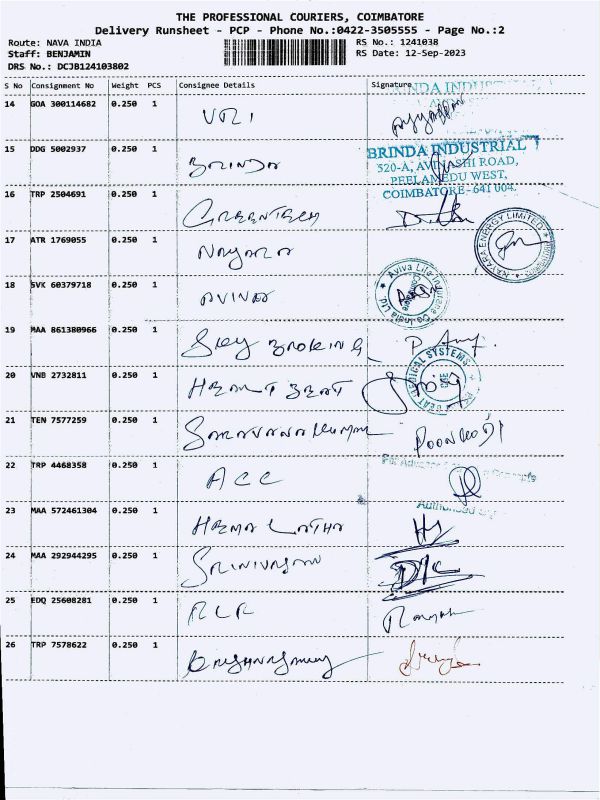 THE PROFESSIONAL COURIERS, COIMBATORE
Delivery Runsheet - PCP - Phone No.:0422-3505555 - Page No.:2
Route: NAVA INDIA RS No.: 1241038
Staff: BENJAMIN RS Date: 12-Sep-2023
DRS No.: DCJB124103802
S No Consignment No Weight PCS Consignee Details Signature
BRINDA INDUSTRIAL
14 GOA 300114682 0.250 1 VRI
15 DDG 5002937 0.250 1 BRINDA
BRINDA INDUSTRIAL
520-A, AVINASHI ROAD,
PEELAMEDU WEST,
COIMBATORE - 641 004.
16 TRP 2504691 0.250 1 GREENTECH
NAYARA ENERGY LIMITED
17 ATR 1769055 0.250 1 NAYARA
18 SVK 60379718 0.250 1 AVIVA
Aviva Life Insurance Co. India Ltd.
19 MAA 861380966 0.250 1 SKY BROKING
20 VNB 2732811 0.250 1 HEART BEAT
MEDICAL SYSTEMS
21 TEN 7577259 1 0.250 SARAVANAKUMAR POONKODI
22 TRP 4468358 0.250 1 ACC
23 MAA 572461304 0.250 1 HEMA LATHA
24 MAA 292944295 0.250 1 SRINIVASAN
25 EDQ 25608281 0.250 1 RLR
26 TRP 7578622 0.250 1